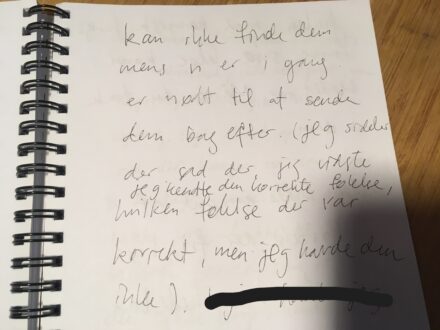 kan ikke finde dem
mens vi er i gang.
er nødt til at sende
dem bag efter. (jeg sidder
der sad der jeg vidste
jeg kendte den korrekte følelse,
hvilken følelse der var
korrekt, men jeg havde den
ikke).